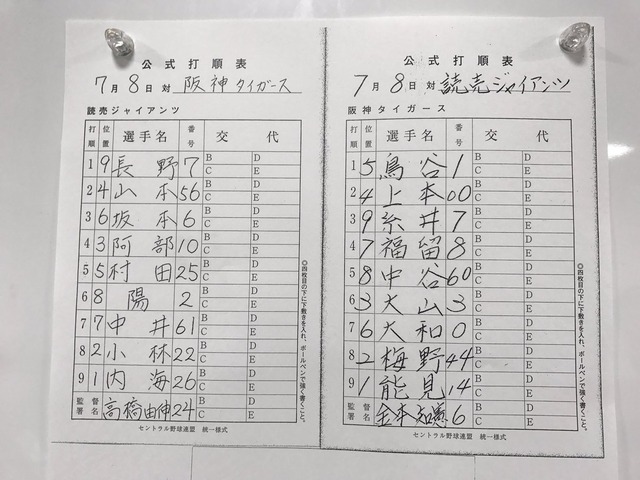 公式打順表
7月8日対 阪神タイガース
読売ジャイアンツ
打順 位置 選手名 番号 交代
1 9 長野 7 B D C E
2 4 山本 56 B D C E
3 6 坂本 6 B D C E
4 3 阿部 10 B D C E
5 5 村田 25 B D C E
6 8 陽 2 B D C E
7 7 中井 61 B D C E
8 2 小林 22 B D C E
9 1 内海 26 B D C E
監督署名 高橋由伸 24 B D C E
セントラル野球連盟 統一様式
◎四枚目の下に下敷きを入れ、ボールペンで強く書くこと。
公式打順表
7月8日対 読売ジャイアンツ
阪神タイガース
打順 位置 選手名 番号 交代
1 5 鳥谷 1 B D C E
2 4 上本 00 B D C E
3 9 糸井 7 B D C E
4 7 福留 8 B D C E
5 8 中谷 60 B D C E
6 3 大山 3 B D C E
7 6 大和 0 B D C E
8 2 梅野 44 B D C E
9 1 能見 14 B D C E
監督署名 金本知憲 6 B D C E
セントラル野球連盟 統一様式
◎四枚目の下に下敷きを入れ、ボールペンで強く書くこと。